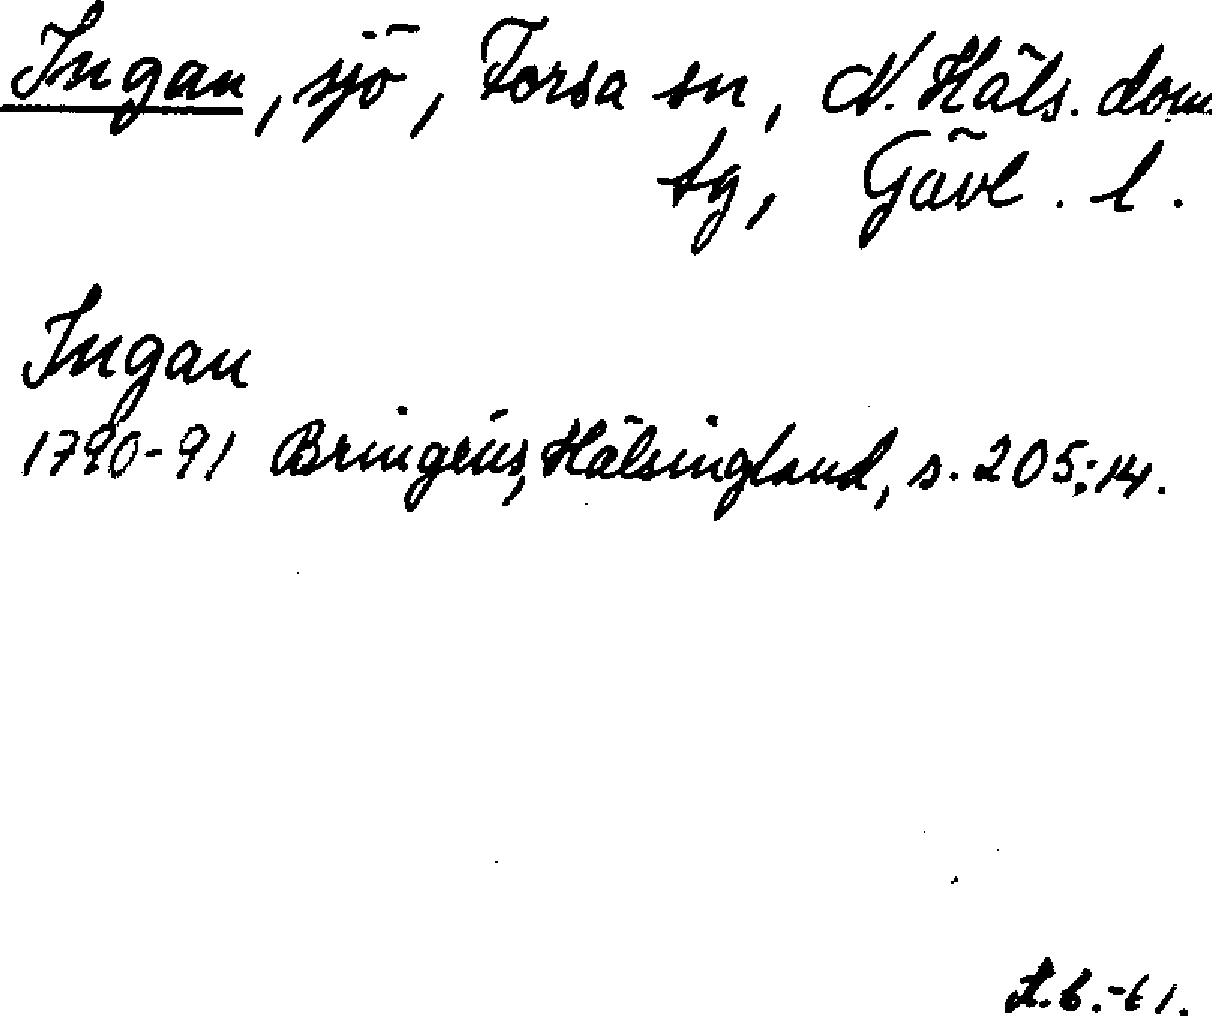 Ingan, sjö, Forsa sn, N. Häls. dom
sg, Gävl. l.
Ingan
1790-91 Bringéus, Hälsingland, s. 205:14.
S.B.-61.